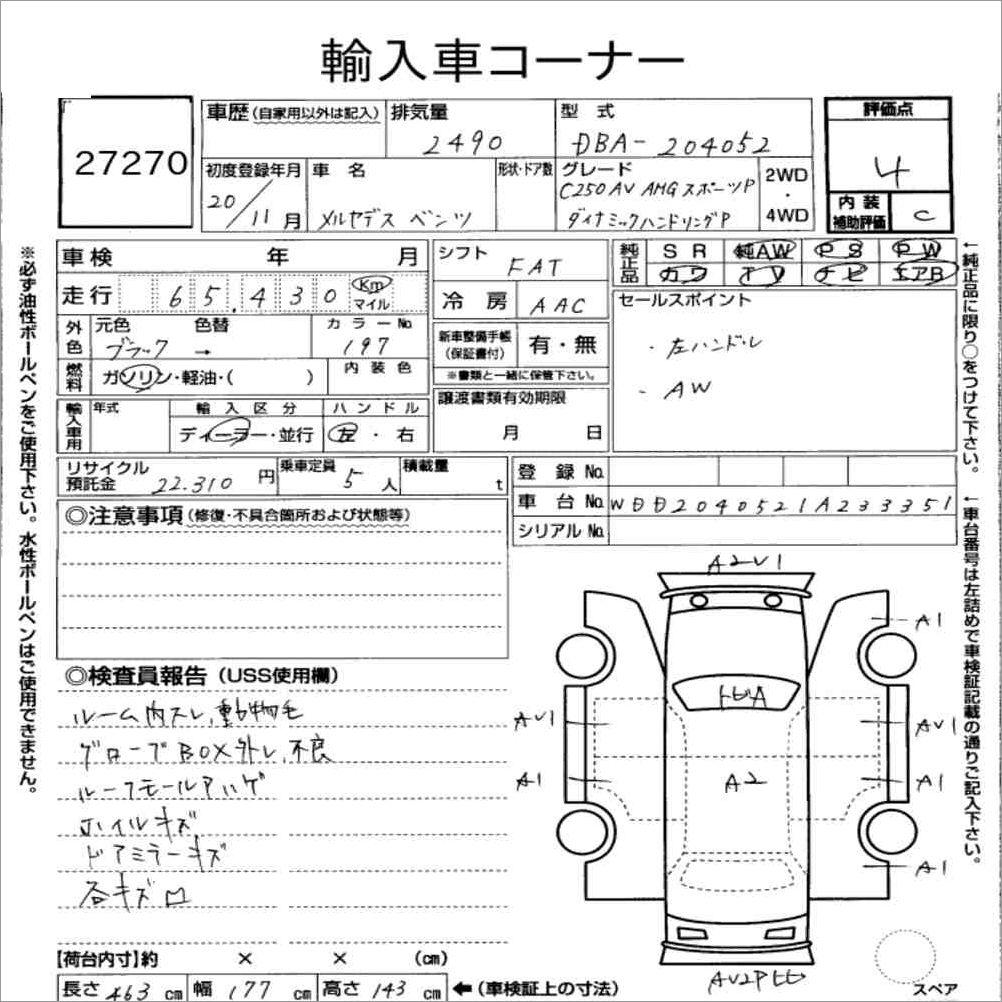 輸入車コーナー
27270
車歴 (自家用以外は記入)
排気量
2490
型 式
DBA-204052
評価点
4
初度登録年月
20/11月
車 名
メルセデス ベンツ
形状・ドア数
グレード
C250 AV AMGスポーツP
ダイナミックハンドリングP
2WD
・
4WD
内 装
補助評価
C
車検 年 月
走行 65,430 Km
マイル
外色
元色 色替
ブラック →
カラーNo.
197
燃料
ガソリン・軽油・( )
内 装 色
シフト
FAT
冷 房 AAC
新車整備手帳
(保証書付)
有・無
※書類と一緒に保管下さい。
純正品
SR 純AW PS PW
カワ TV ナビ エアB
セールスポイント
・左ハンドル
・AW
輸入車用
年式
輸 入 区 分
ディーラー・並行
ハ ン ド ル
左・右
譲渡書類有効期限
月 日
リサイクル
預託金 22,310 円
乗車定員 5 人
積載量 t
登 録 No.
車 台 No. WDD2040521A233351
シリアル No.
◎注意事項 (修復・不具合箇所および状態等)
◎検査員報告 (USS使用欄)
ルーム内スレ、動物毛
グローブBOX外レ、不良
ルーフモールアハゲ
ホイルキズ
ドアミラーキズ
各キズ
A2V1
A1
トビA
AV1
AV1
A1
A2
A1
A1
スペア
【荷台内寸】約 × × (cm)
長さ 463 cm 幅 177 cm 高さ 143 cm ←(車検証上の寸法)
※必ず油性ボールペンをご使用下さい。水性ボールペンはご使用できません。
←純正品に限り○をつけて下さい。
←車台番号は左詰めで車検証記載の通りご記入下さい。